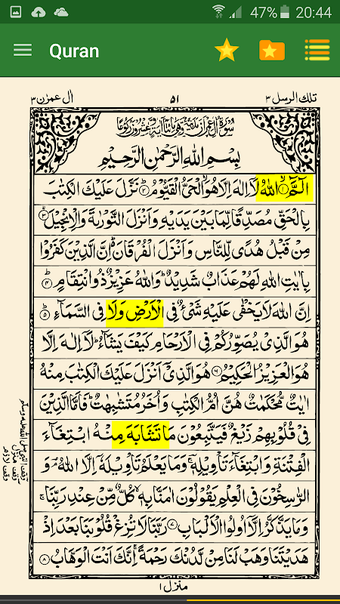 47% 20:44
Quran
تلك الرسل ٣ ٥١ اٰل عمرٰن ٣
بِسْمِ اللّٰهِ الرَّحْمٰنِ الرَّحِيْمِ
الٓمّٓ ۙ﴿١﴾ اللّٰهُ لَاۤ اِلٰهَ اِلَّا هُوَ الْحَىُّ الْقَيُّوْمُ ؕ﴿٢﴾ نَزَّلَ عَلَيْكَ الْكِتٰبَ
بِالْحَقِّ مُصَدِّقًا لِّمَا بَيْنَ يَدَيْهِ وَاَنْزَلَ التَّوْرٰىةَ وَالْاِنْجِيْلَ ۙ﴿٣﴾
مِنْ قَبْلُ هُدًى لِّلنَّاسِ وَاَنْزَلَ الْفُرْقَانَ ؕ اِنَّ الَّذِيْنَ كَفَرُوْا
بِاٰيٰتِ اللّٰهِ لَهُمْ عَذَابٌ شَدِيْدٌ ؕ وَاللّٰهُ عَزِيْزٌ ذُو انْتِقَامٍ ﴿٤﴾
اِنَّ اللّٰهَ لَا يَخْفٰى عَلَيْهِ شَىْءٌ فِى الْاَرْضِ وَلَا فِى السَّمَآءِ ؕ﴿٥﴾
هُوَ الَّذِىْ يُصَوِّرُكُمْ فِى الْاَرْحَامِ كَيْفَ يَشَآءُ ؕ لَاۤ اِلٰهَ اِلَّا
هُوَ الْعَزِيْزُ الْحَكِيْمُ ﴿٦﴾ هُوَ الَّذِىْۤ اَنْزَلَ عَلَيْكَ الْكِتٰبَ مِنْهُ
اٰيٰتٌ مُّحْكَمٰتٌ هُنَّ اُمُّ الْكِتٰبِ وَاُخَرُ مُتَشٰبِهٰتٌ ؕ فَاَمَّا الَّذِيْنَ
فِىْ قُلُوْبِهِمْ زَيْغٌ فَيَتَّبِعُوْنَ مَا تَشَابَهَ مِنْهُ ابْتِغَآءَ
الْفِتْنَةِ وَابْتِغَآءَ تَاْوِيْلِهٖ ؔۚ وَمَا يَعْلَمُ تَاْوِيْلَهٗۤ اِلَّا اللّٰهُ ؔۘ وَ
الرّٰسِخُوْنَ فِى الْعِلْمِ يَقُوْلُوْنَ اٰمَنَّا بِهٖ ۙ كُلٌّ مِّنْ عِنْدِ رَبِّنَا ۚ
وَمَا يَذَّكَّرُ اِلَّاۤ اُولُوا الْاَلْبَابِ ﴿٧﴾ رَبَّنَا لَا تُزِغْ قُلُوْبَنَا بَعْدَ اِذْ
هَدَيْتَنَا وَهَبْ لَنَا مِنْ لَّدُنْكَ رَحْمَةً ۚ اِنَّكَ اَنْتَ الْوَهَّابُ ﴿٨﴾
منزل ١